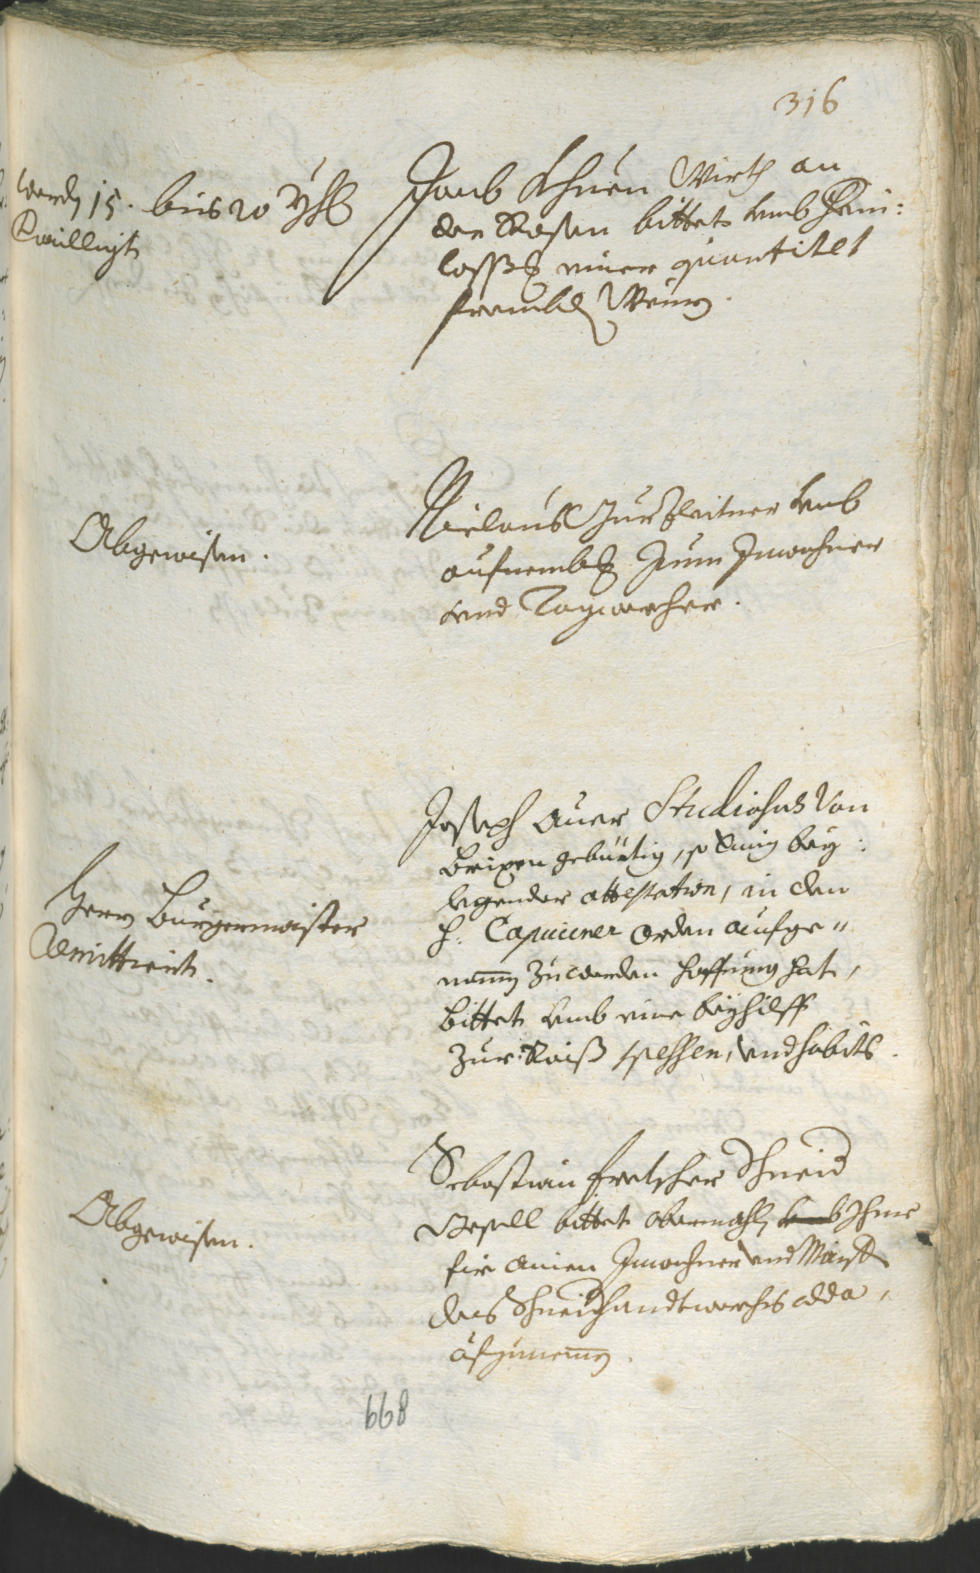 316
werdn 15. bis 20 Yhrn
bewilligt
Jacob Khuen Wirth an
der Rosen bittet umb Hein:
lassung einer quantitet
frembden Wein.
Abgewisen.
Niclauß Zurßleitner umb
aufnembung zum Inwohner
und Tagwercher.
Herrn Burgermaister
Remittiert.
Joseph Auer Studiosus von
Brixen gebürtig, so vermig bey:
legender attestation, in den
h: Capuciner Orden aufge=
nomen zu werden hoffnung hat,
bittet umb eine beyhilff
zur Raiß spessen, und habits.
Abgewisen.
Sebastian Fretscher Schneid
Gesell bittet abermahln umb Ihme
für ainen Inwohner und Maister
des Schneidhandtwerchs alda
aufzunemen.
668